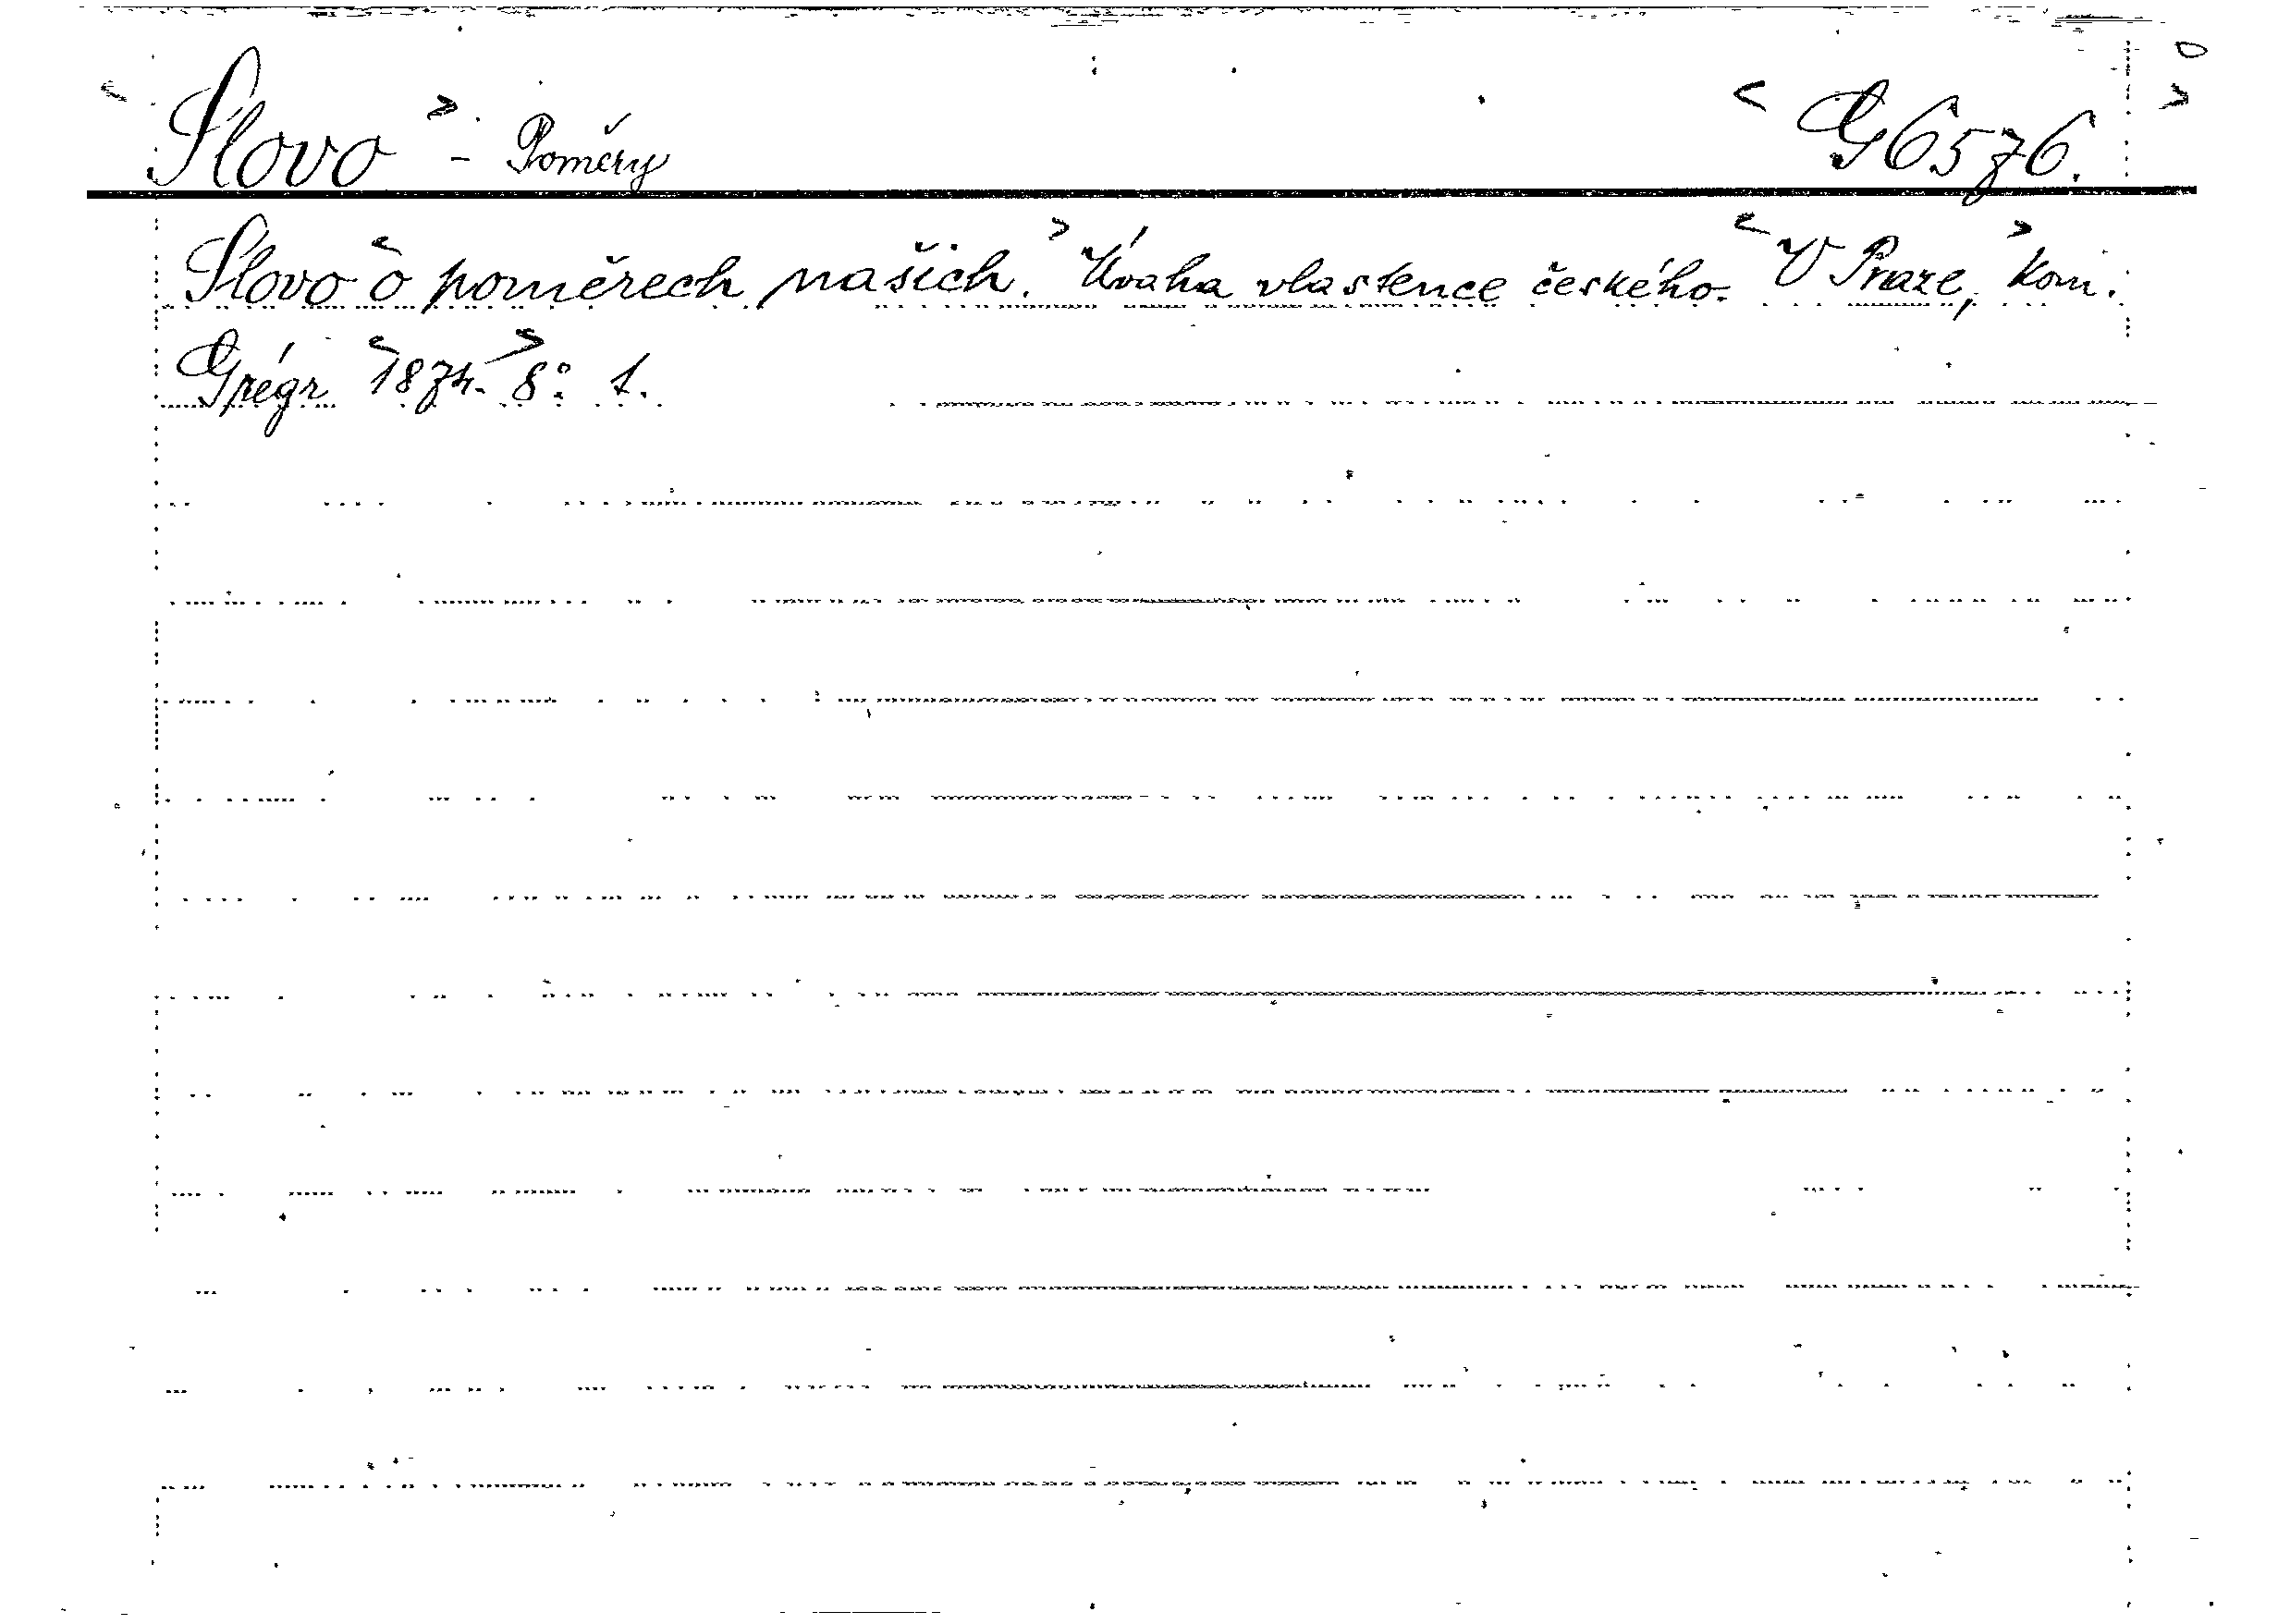 <Slovo> - Poměry <G 6576.>
Slovo <o poměrech našich.> Úvaha vlastence českého. <V Praze,> kom.
Grégr <1874.> 8° 1.